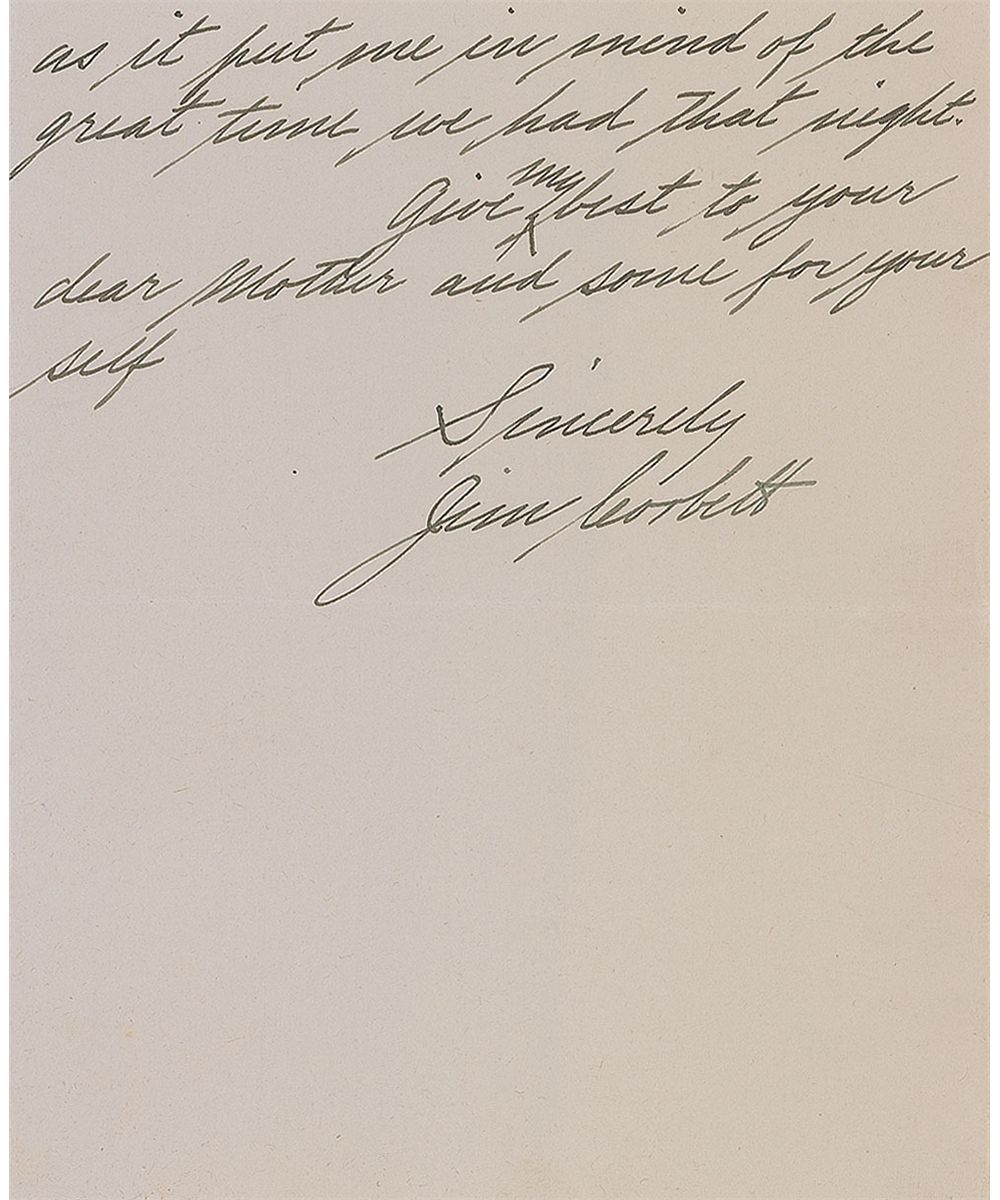 as it put me in mind of the
great time we had that night.
Give my best to your
dear Mother and some for your
self
Sincerely
Jim Corbett